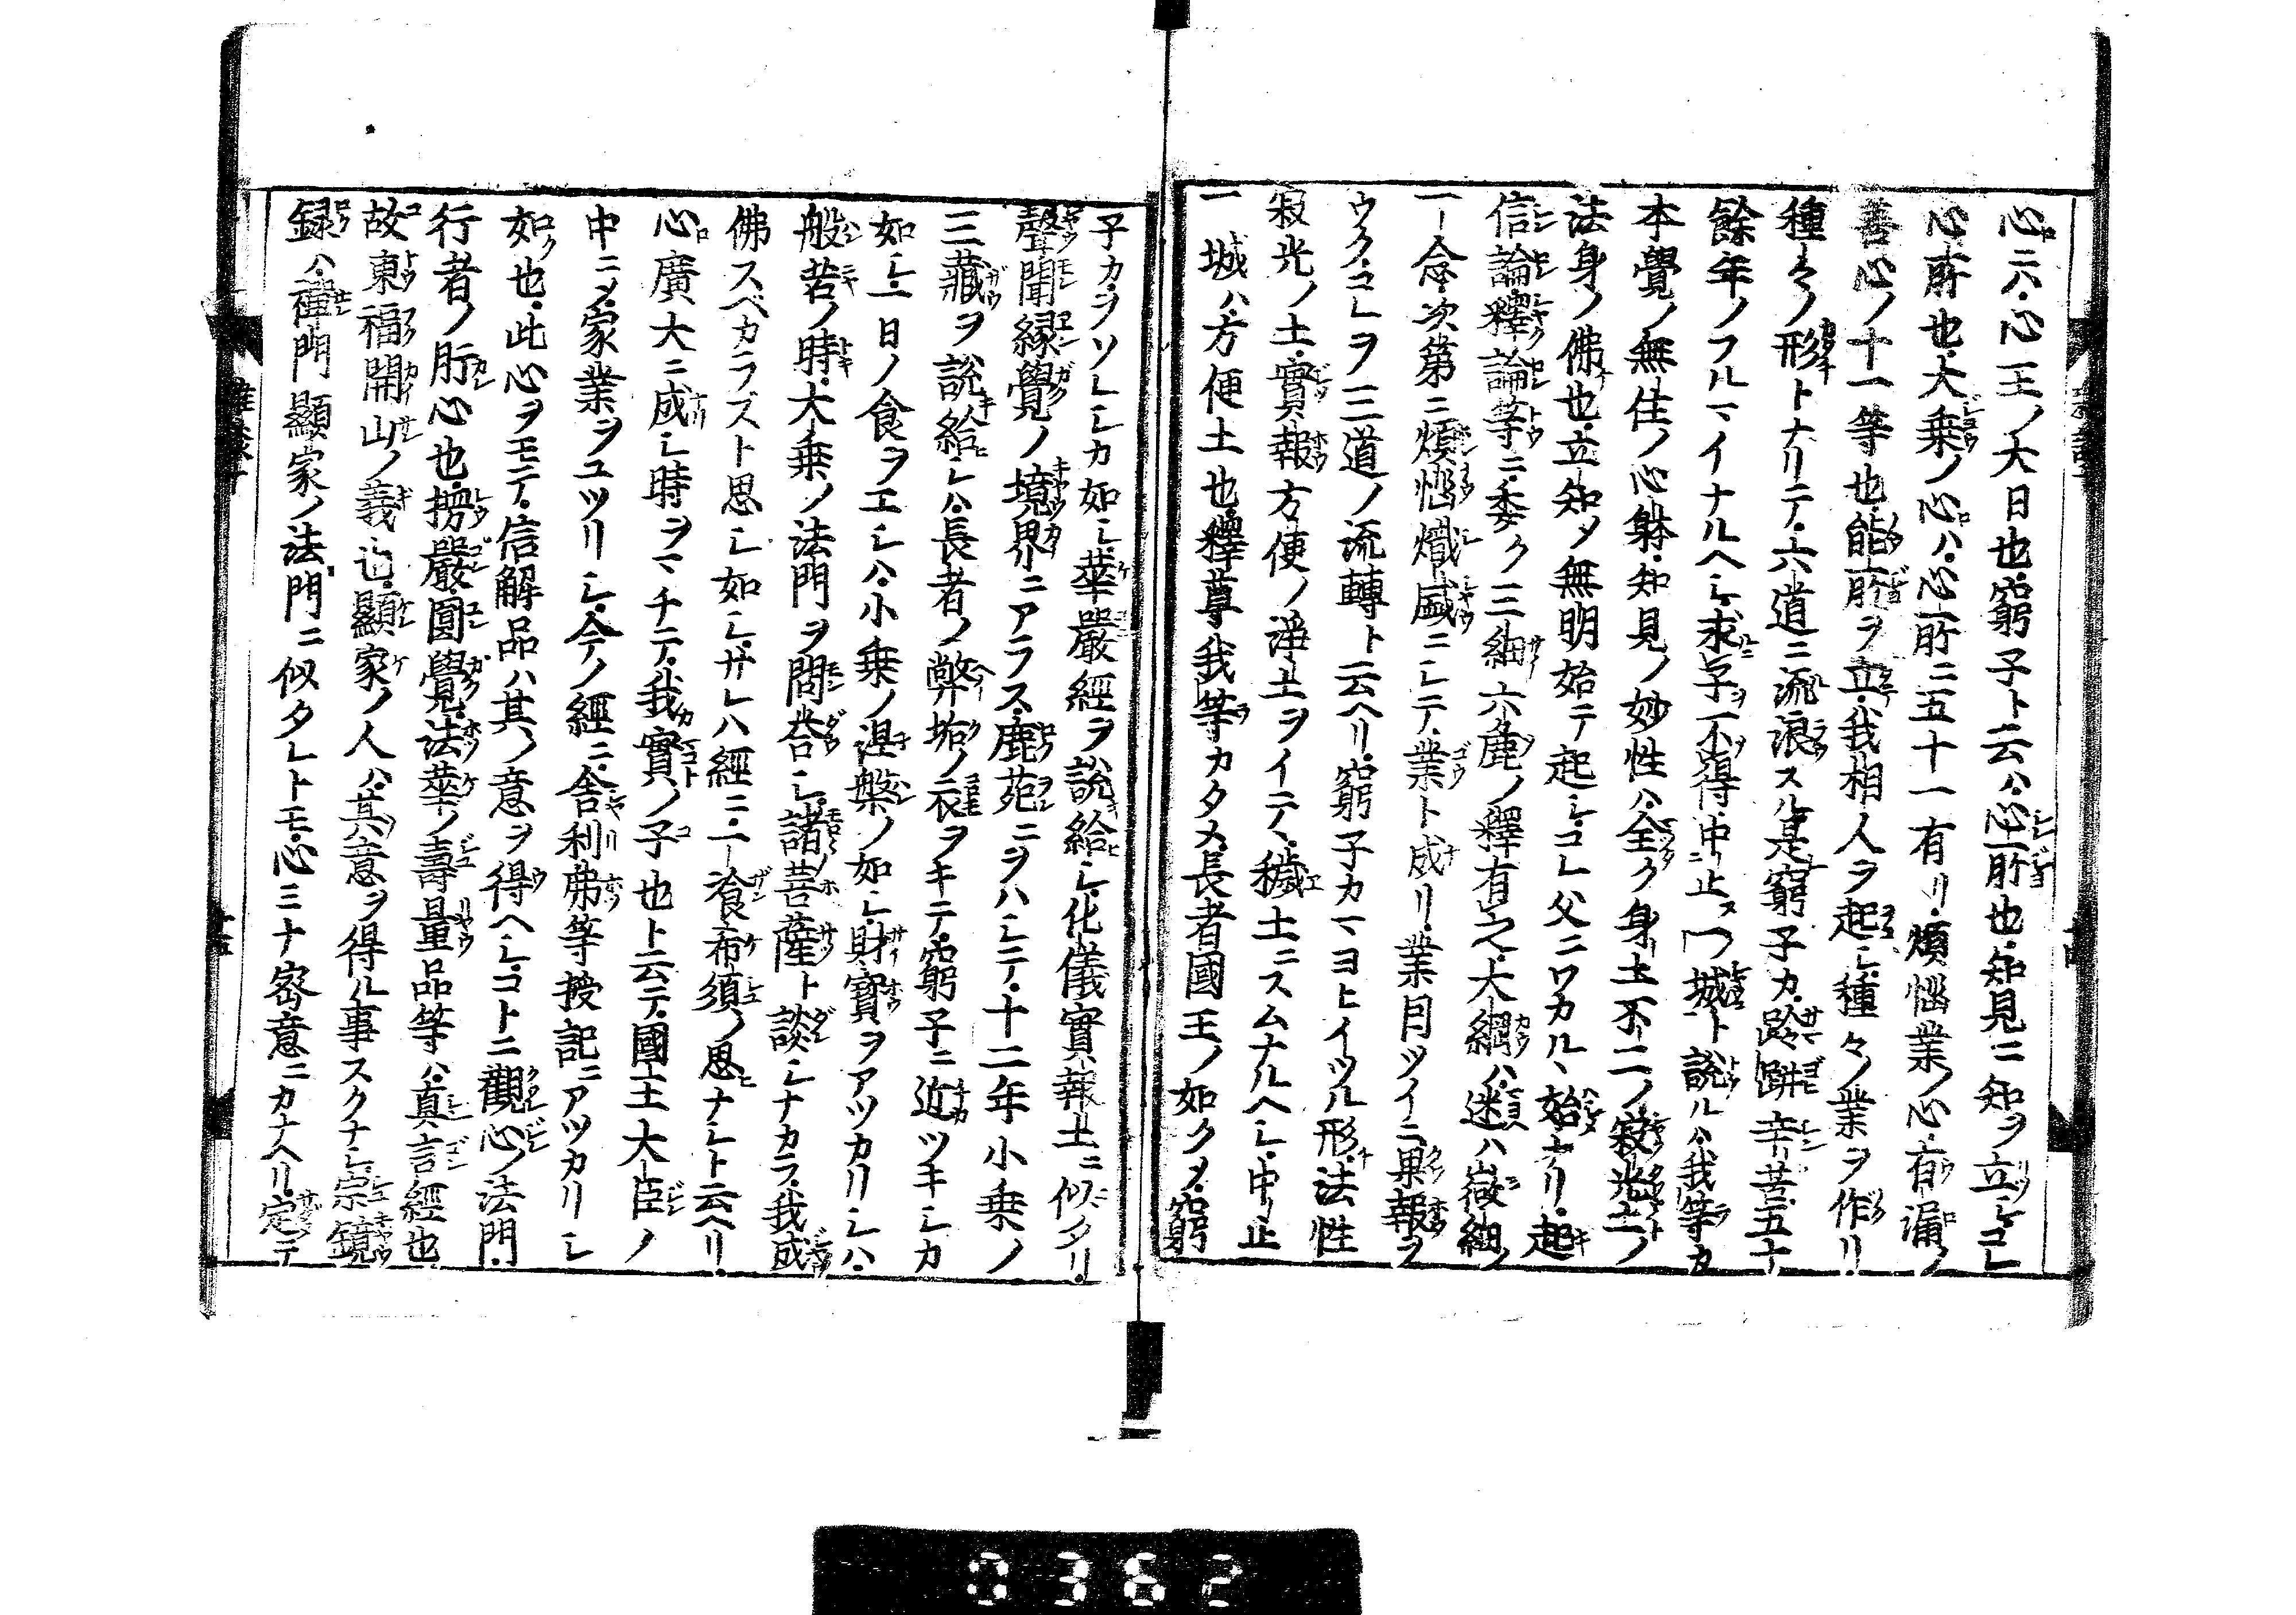 心ニハ心王ノ大日也窮子ト云ハ心所也知見ニ知ヲ立シコレ
心所也大乗ノ心ハ心所ニ五十一有リ煩惱業ノ心有漏ノ
善心ノ十一等也能所ヲ立我相人ヲ起シ種々ノ業ヲ作リ
種々ノ形トナリテ六道ニ流浪スル是窮子カ跉跰辛苦五十
餘年ノフルマイナルヘシ求子不得中止一城ト説ルハ我等カ
本覺ノ無住ノ心躰知見ノ妙性ハ全ク身土不二ノ寂光土ノ
法身ノ佛也立知タ無明始テ起シコレ父ニワカルヽ始ナリ起
信論釋論等ニ委ク三細六麁ノ釋有之大綱ハ迷ハ嶽細ノ
一念次第ニ煩惱熾盛ニシテ業ト成リ業用ツイニ果報ヲ
ウクコレヲ三道ノ流轉ト云ヘリ窮子カマヨヒイツル形法性
寂光ノ土實報方便ノ淨土ヲイテヽ穢土ニスムナルヘシ中止
一城ハ方便土也釋尊我等カタメ長者國王ノ如クメ窮
子カヲソレシカ如シ華嚴經ヲ説給シ化儀實報土ニ似タリ
聲聞縁覺ノ境界ニアラス鹿苑ニヲハシテ十二年小乗ノ
三藏ヲ説給シハ長者ノ弊垢ノ衣ヲキテ窮子ニ近ツキシカ
如シ一日ノ食ヲエシハ小乗ノ涅槃ノ如シ財寶ヲアツカリシハ
般若ノ時大乗ノ法門ヲ問答シ諸菩薩ト談シナカラ我成
佛スベカラズト思シ如シサレハ經ニ一飡希須ノ思ナシト云ヘリ
心廣大ニ成シ時ヲマチテ我實ノ子也ト云テ國王大臣ノ
中ニメ家業ヲユツリシ今ノ經ニ舎利弗等授記ニアツカリシ
如ク也此心ヲモテ信解品ハ其ノ意ヲ得ヘシコトニ觀心ノ法門
行者ノ肝心也楞嚴圓覺法華ノ壽量品等ハ真言經也
故東福開山ノ義也顯家ノ人ハ其意ヲ得ル事スクナシ宗鏡
録ハ禪門顯家ノ法門ニ似タレトモ心ミナ密意ニカナヘリ定テ
0362